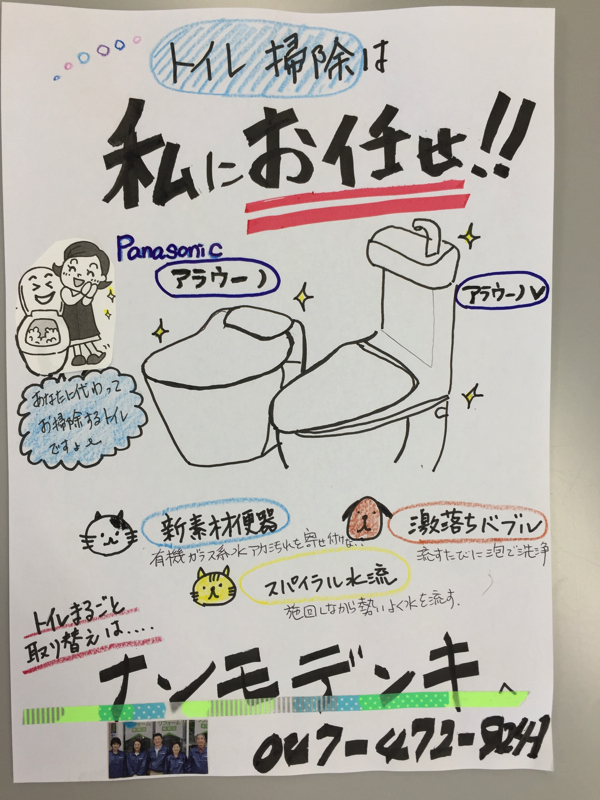 トイレ掃除は
私にお任せ!!
Panasonic
アラウーノ
アラウーノV
あなたに代わって
お掃除するトイレ
ですよ〜
新素材便器
有機ガラス系 水アカ汚れを寄せ付けない!
激落ちバブル
流すたびに泡で洗浄
スパイラル水流
施回しながら勢いよく水を流す.
トイレまるごと
取り替えは....
ナンモデンキへ
047-472-8241